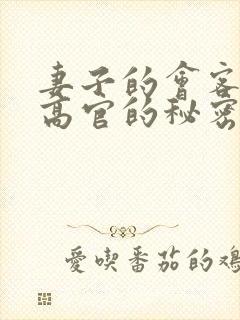 妻子的會客
高官的秘密
愛喫番茄的鸡